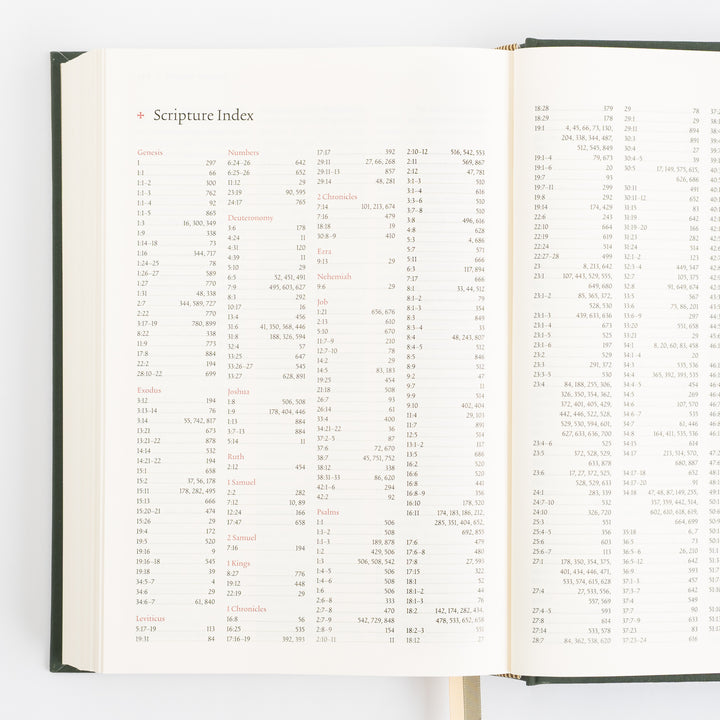 Scripture Index
Genesis
1 297
1:1 66
1:1–2 300
1:1–3 762
1:1–4 92
1:1–5 865
1:3 16, 300, 349
1:9 338
1:14–18 73
1:16 344, 717
1:24–25 78
1:26–27 589
1:27 770
1:31 48, 338
2:7 344, 589, 727
2:22 770
3:17–19 780, 899
8:22 338
11:9 773
17:8 884
22:2 194
28:10–22 699
Exodus
3:12 194
3:13–14 76
3:14 55, 742, 817
13:21 673
13:21–22 878
14:14 532
14:21–22 194
15:1 658
15:2 37, 56, 178
15:11 178, 282, 495
15:13 666
15:20–21 474
15:26 29
19:4 172
19:5 520
19:16 9
19:16–18 545
19:18 39
34:5–7 4
34:6 29
34:6–7 61, 840
Leviticus
5:17–19 113
19:31 84
Numbers
6:24–26 642
6:25–26 652
11:12 29
23:19 90, 595
24:17 765
Deuteronomy
3:6 178
4:24 11
4:31 120
4:39 11
5:10 29
6:5 52, 451, 491
7:9 495, 603, 627
8:3 292
10:17 16
13:4 456
31:6 41, 350, 368, 446
31:8 188, 326, 594
32:4 57
33:25 647
33:26–27 545
33:27 628, 891
Joshua
1:8 506, 508
1:9 178, 404, 446
1:13 884
3:7–13 884
5:14 11
Ruth
2:12 454
1 Samuel
2:2 282
7:12 10, 89
12:24 166
17:47 658
2 Samuel
7:16 194
1 Kings
8:27 776
19:12 448
22:19 29
1 Chronicles
16:8 56
16:25 535
17:16–19 392, 393
17:17 392
29:11 27, 66, 268
29:11–13 857
29:14 48, 281
2 Chronicles
7:14 101, 213, 674
7:16 479
18:18 19
30:8–9 410
Ezra
9:13 29
Nehemiah
9:6 29
Job
1:21 656, 676
2:13 610
5:10 670
11:7–9 210
12:7–10 78
14:2 29
14:5 83, 183
19:25 454
21:18 508
26:7 93
26:14 61
33:4 400
34:21–22 36
37:2–5 87
37:6 72, 670
38:7 45, 751, 752
38:12 338
38:31–33 86, 620
42:1–6 294
42:2 92
Psalms
1:1 506
1:1–2 508
1:1–3 189, 878
1:2 429, 506
1:3 506, 508, 542
1:4–5 506
1:4–6 508
1:6 506
2:6–8 333
2:7–8 470
2:7–9 542, 729, 848
2:8–9 154
2:10–11 11
2:10–12 516, 542, 553
2:11 569, 867
2:12 47, 781
3:1–3 510
3:1–4 616
3:3–6 510
3:7–8 510
3:8 496, 616
4:8 628
5:3 4, 686
5:7 571
5:11 666
6:3 117, 894
7:17 666
8:1 33, 44, 512
8:1–2 79
8:1–3 354
8:3 849
8:3–4 33
8:4 48, 243, 807
8:4–5 512
8:5 846
8:9 512
9:2 47
9:7 11
9:9 514
9:10 402, 404
11:4 29, 103
11:7 891
12:5 514
13:1–2 117
13:5 686
16:2 520
16:6 520
16:8 441
16:8–9 356
16:10 178, 520
16:11 174, 183, 186, 212,
285, 351, 404, 652,
692, 855
17:6 479
17:6–8 480
17:8 27, 593
17:15 322
18:1 52
18:1–2 44
18:1–3 76
18:2 142, 174, 282, 434,
478, 533, 652, 658
18:2–3 551
18:12 27
18:28 379
18:29 178
19:1 4, 45, 66, 73, 130,
204, 338, 344, 487,
512, 545, 849
19:1–4 79, 673
19:1–6 20
19:7 93
19:7–11 299
19:8 292
19:14 174, 429
22:6 243
22:10 664
22:19 619
22:24 514
22:27–28 499
23 8, 213, 642
23:1 107, 443, 529, 555,
649, 680
23:1–2 85, 365, 372,
528, 530
23:1–3 439, 633, 636
23:1–4 673
23:1–5 325
23:1–6 197
23:2 529
23:3 291, 372
23:3–5 530
23:4 84, 188, 255, 306,
326, 350, 354, 362,
372, 401, 405, 429,
442, 446, 522, 528,
529, 530, 594, 601,
627, 633, 636, 700
23:4–6 525
23:5 372, 528, 529,
633, 878
23:6 17, 27, 372, 525,
528, 529, 633
24:1 283, 339
24:7–10 513, 656
24:10 326, 720
25:3 551
25:4–5 256, 356
25:6 603
25:6–7 113
27:1 178, 350, 354, 375,
401, 434, 446, 471,
533, 574, 615, 628
27:4 27, 533, 556,
557, 569
27:4–5 593
27:8 614
27:14 533, 578
28:7 84, 362, 538, 620
29 78
29:1 29
29:11 894
30:3 891
30:4 27
30:4–5 39
30:5 17, 149, 575, 615,
626, 686
30:11 491
30:11–12 652
31:15 83
31:19 642
31:19–20 166
31:23 282
31:24 514
32:1–2 123
32:3–4 449, 547
32:7 103, 375
32:8 91, 649, 674
33:5 567
33:6 73, 86, 201
33:6–9 297
33:20 551, 658
33:21 29
34:1 8, 20, 60, 83, 458
34:1–4 20
34:3 535, 536
34:4 365, 392, 393, 535
34:4–5 454
34:5 269
34:6 107, 570
34:6–7 535
34:7 61, 446
34:8 164, 411, 535, 536
34:15 614
34:17 213, 514, 570,
680, 887
34:17–18 652
34:17–20 91
34:18 47, 48, 87, 149, 255,
357, 359, 442, 514,
602, 610, 618, 619,
664, 699
35:18 6, 7
36:5 73
36:5–6 26, 210
36:5–12 642
36:9 593
37:1–3 457
37:3–7 642
37:4 549
37:7 90
37:7–9 633
37:23 83
37:23–24 616